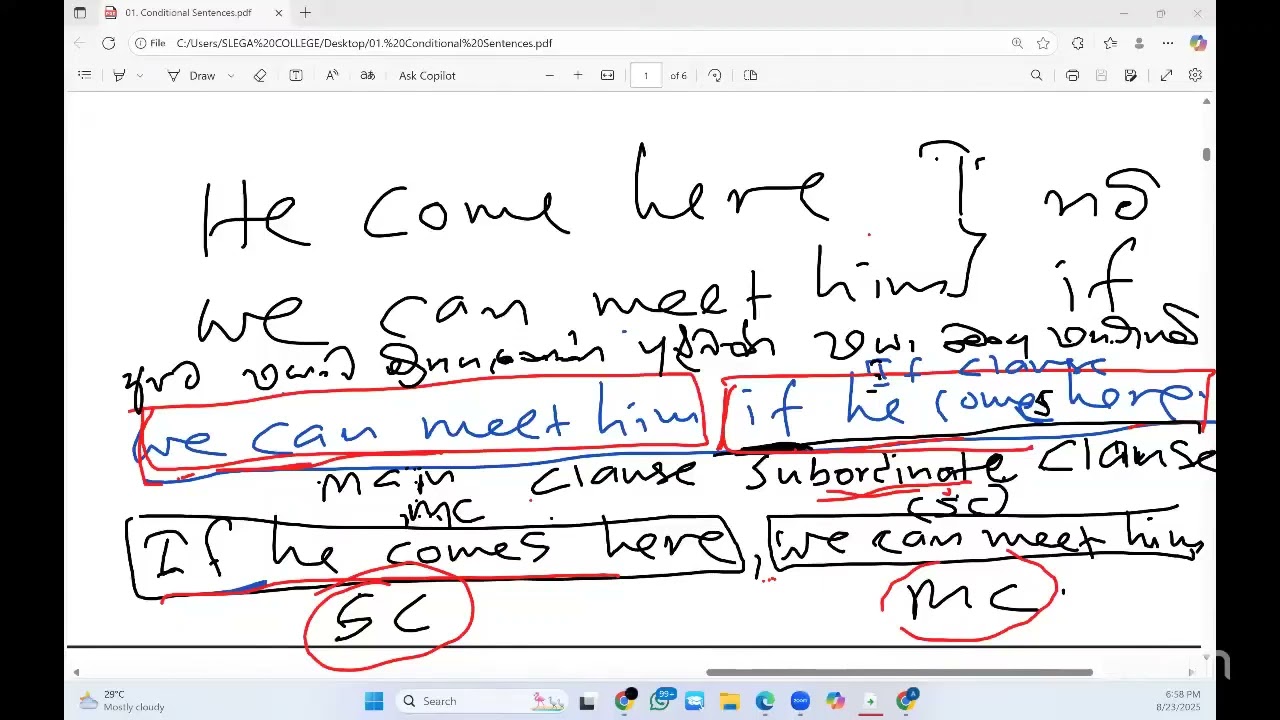 01. Conditional Sentences.pdf
File C:/Users/SLEGA%20COLLEGE/Desktop/01.%20Conditional%20Sentences.pdf
Draw Ask Copilot 1 of 6
He come here
we can meet him if
If clause
we can meet him if he comes here.
main clause subordinate clause
MC (SC)
If he comes here, we can meet him
SC MC.
29°C
Mostly cloudy
Search
99+
6:58 PM
8/23/2025